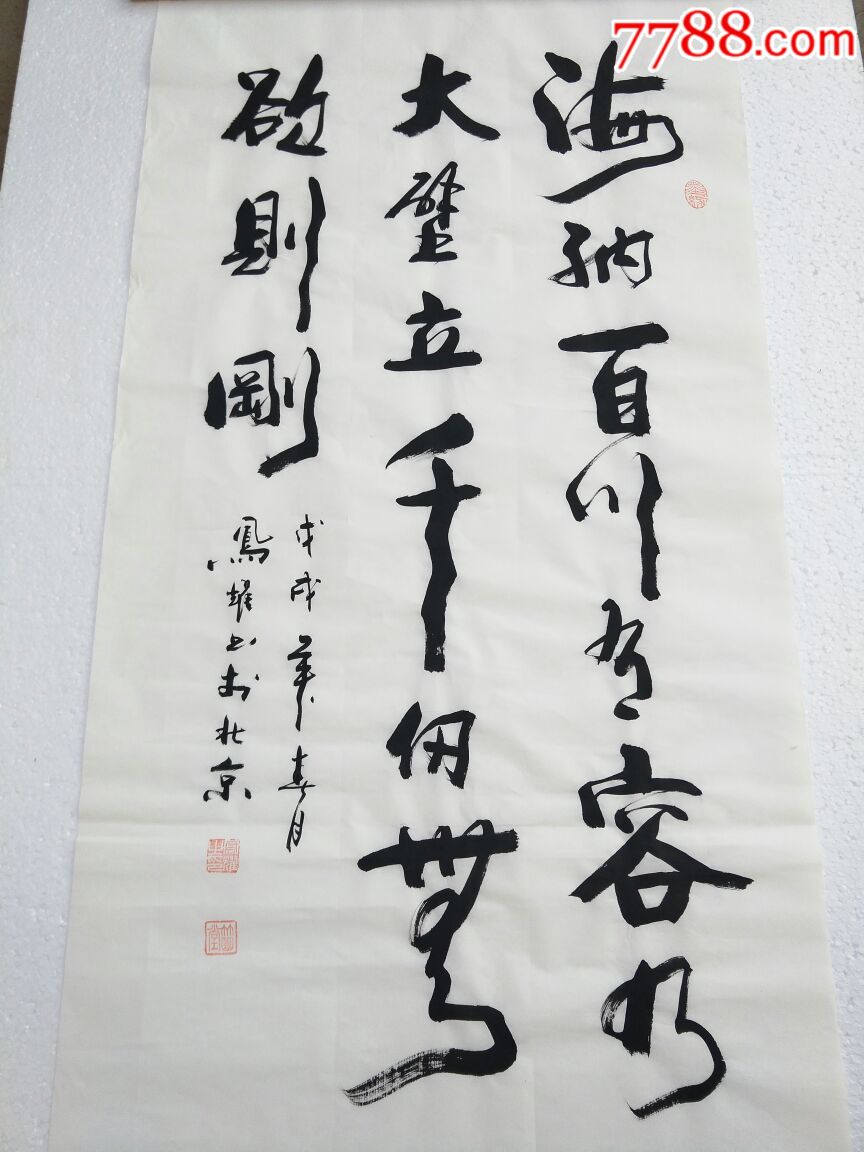 7788.com
海納百川有容乃
大壁立千仞無
欲則剛
戊戌年春月
鳳耀书於北京